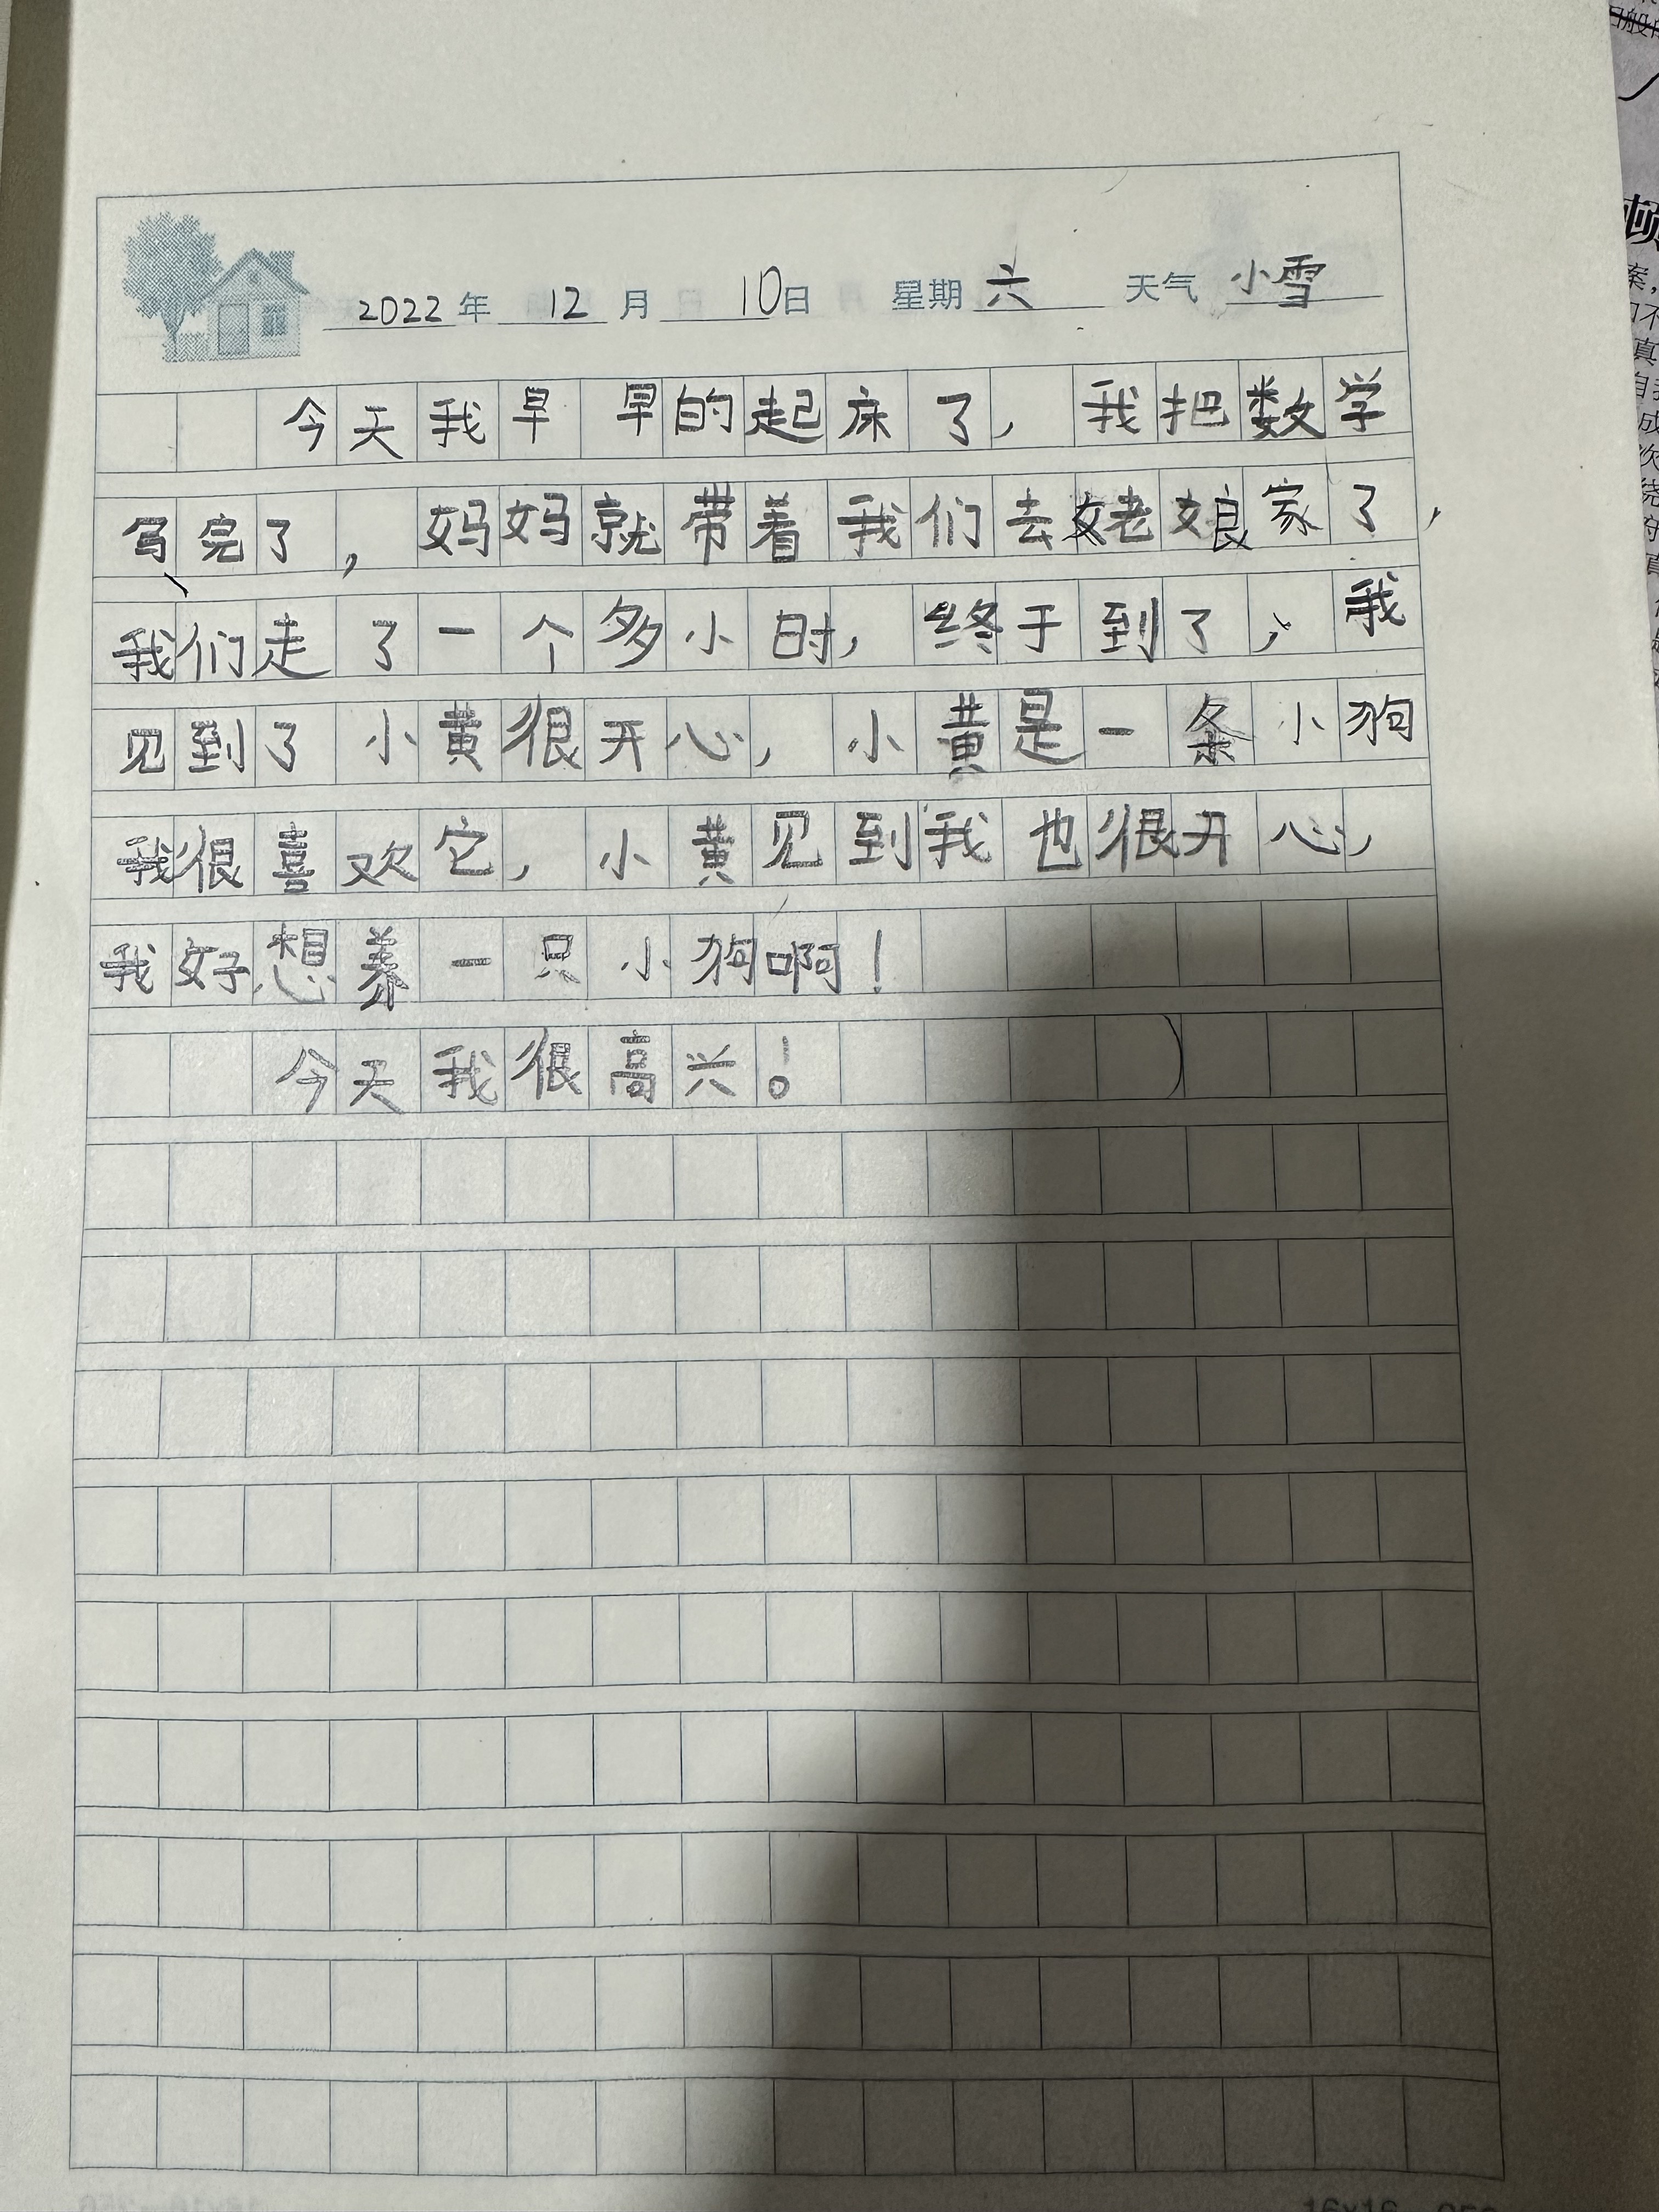 2022年 12月 10日 星期六 天气 小雪
今天我早早的起床了，我把数学
写完了，妈妈就带着我们去姥娘家了，
我们走了一个多小时，终于到了，我
见到了小黄很开心，小黄是一条小狗
我很喜欢它，小黄见到我也很开心，
我好想养一只小狗啊！
今天我很高兴！